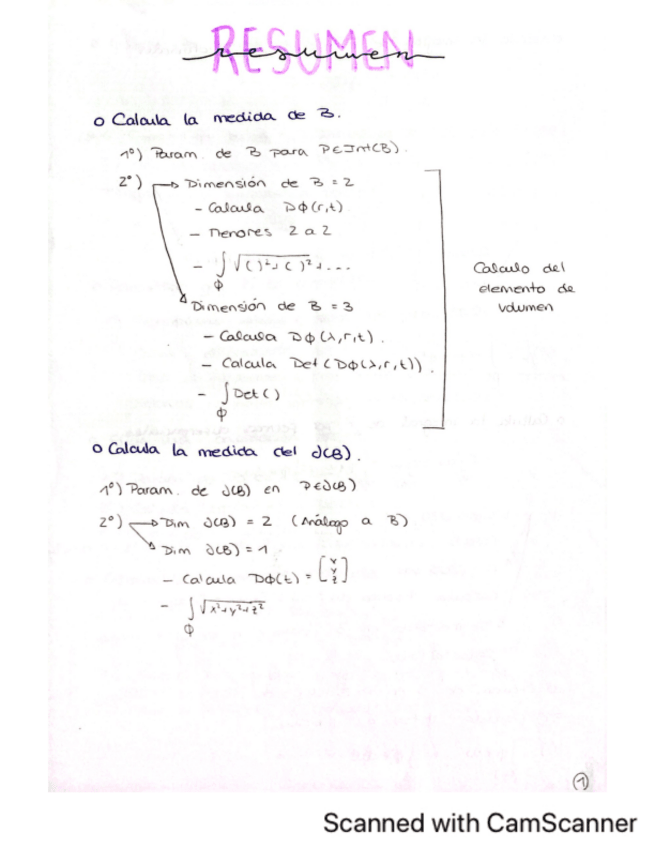 RESUMEN
resumen
o Calcula la medida de B.
1º) Param. de B para P∈Int(B).
2º) → Dimensión de B = 2
- Calcula DΦ(r,t)
- Menores 2 a 2
- ∫ √( )²+( )²+...
Φ
Dimensión de B = 3
- Calcula DΦ(λ,r,t).
- Calcula Det(DΦ(λ,r,t)).
- ∫ Det()
Φ
Calculo del
elemento de
volumen
o Calcula la medida del ∂(B).
1º) Param. de ∂(B) en P∈∂(B)
2º) → Dim ∂(B) = 2 (Análogo a B)
Dim ∂(B) = 1
- Calcula DΦ(t) = [x y z]
- ∫ √x²+y²+z²
Φ
1
Scanned with CamScanner